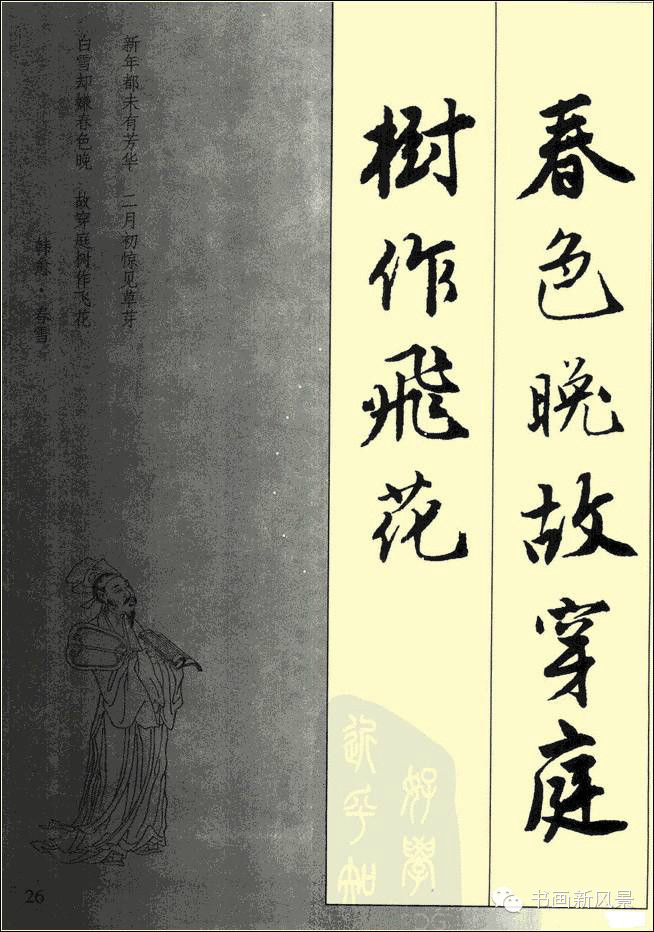 春色晚故穿庭
樹作飛花
新年都未有芳华 二月初惊见草芽
白雪却嫌春色晚 故穿庭树作飞花
韩愈·春雪
好學
近乎知
26
书画新风景